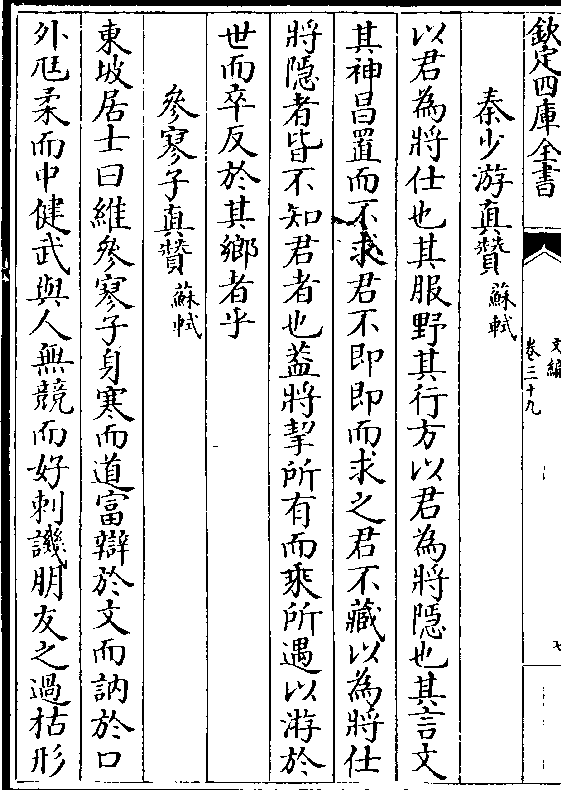 欽定四庫全書
文編
卷三十九
七
秦少游真贊 蘇軾
以君為將仕也其服野其行方以君為將隱也其言文
其神昌置而不求君不即即而求之君不藏以為將仕
將隱者皆不知君者也葢將挈所有而乘所遇以游於
世而卒反於其鄉者乎
參寥子真贊 蘇軾
東坡居士曰維參寥子身寒而道富辯於文而訥於口
外尫柔而中健武與人無競而好刺譏朋友之過枯形